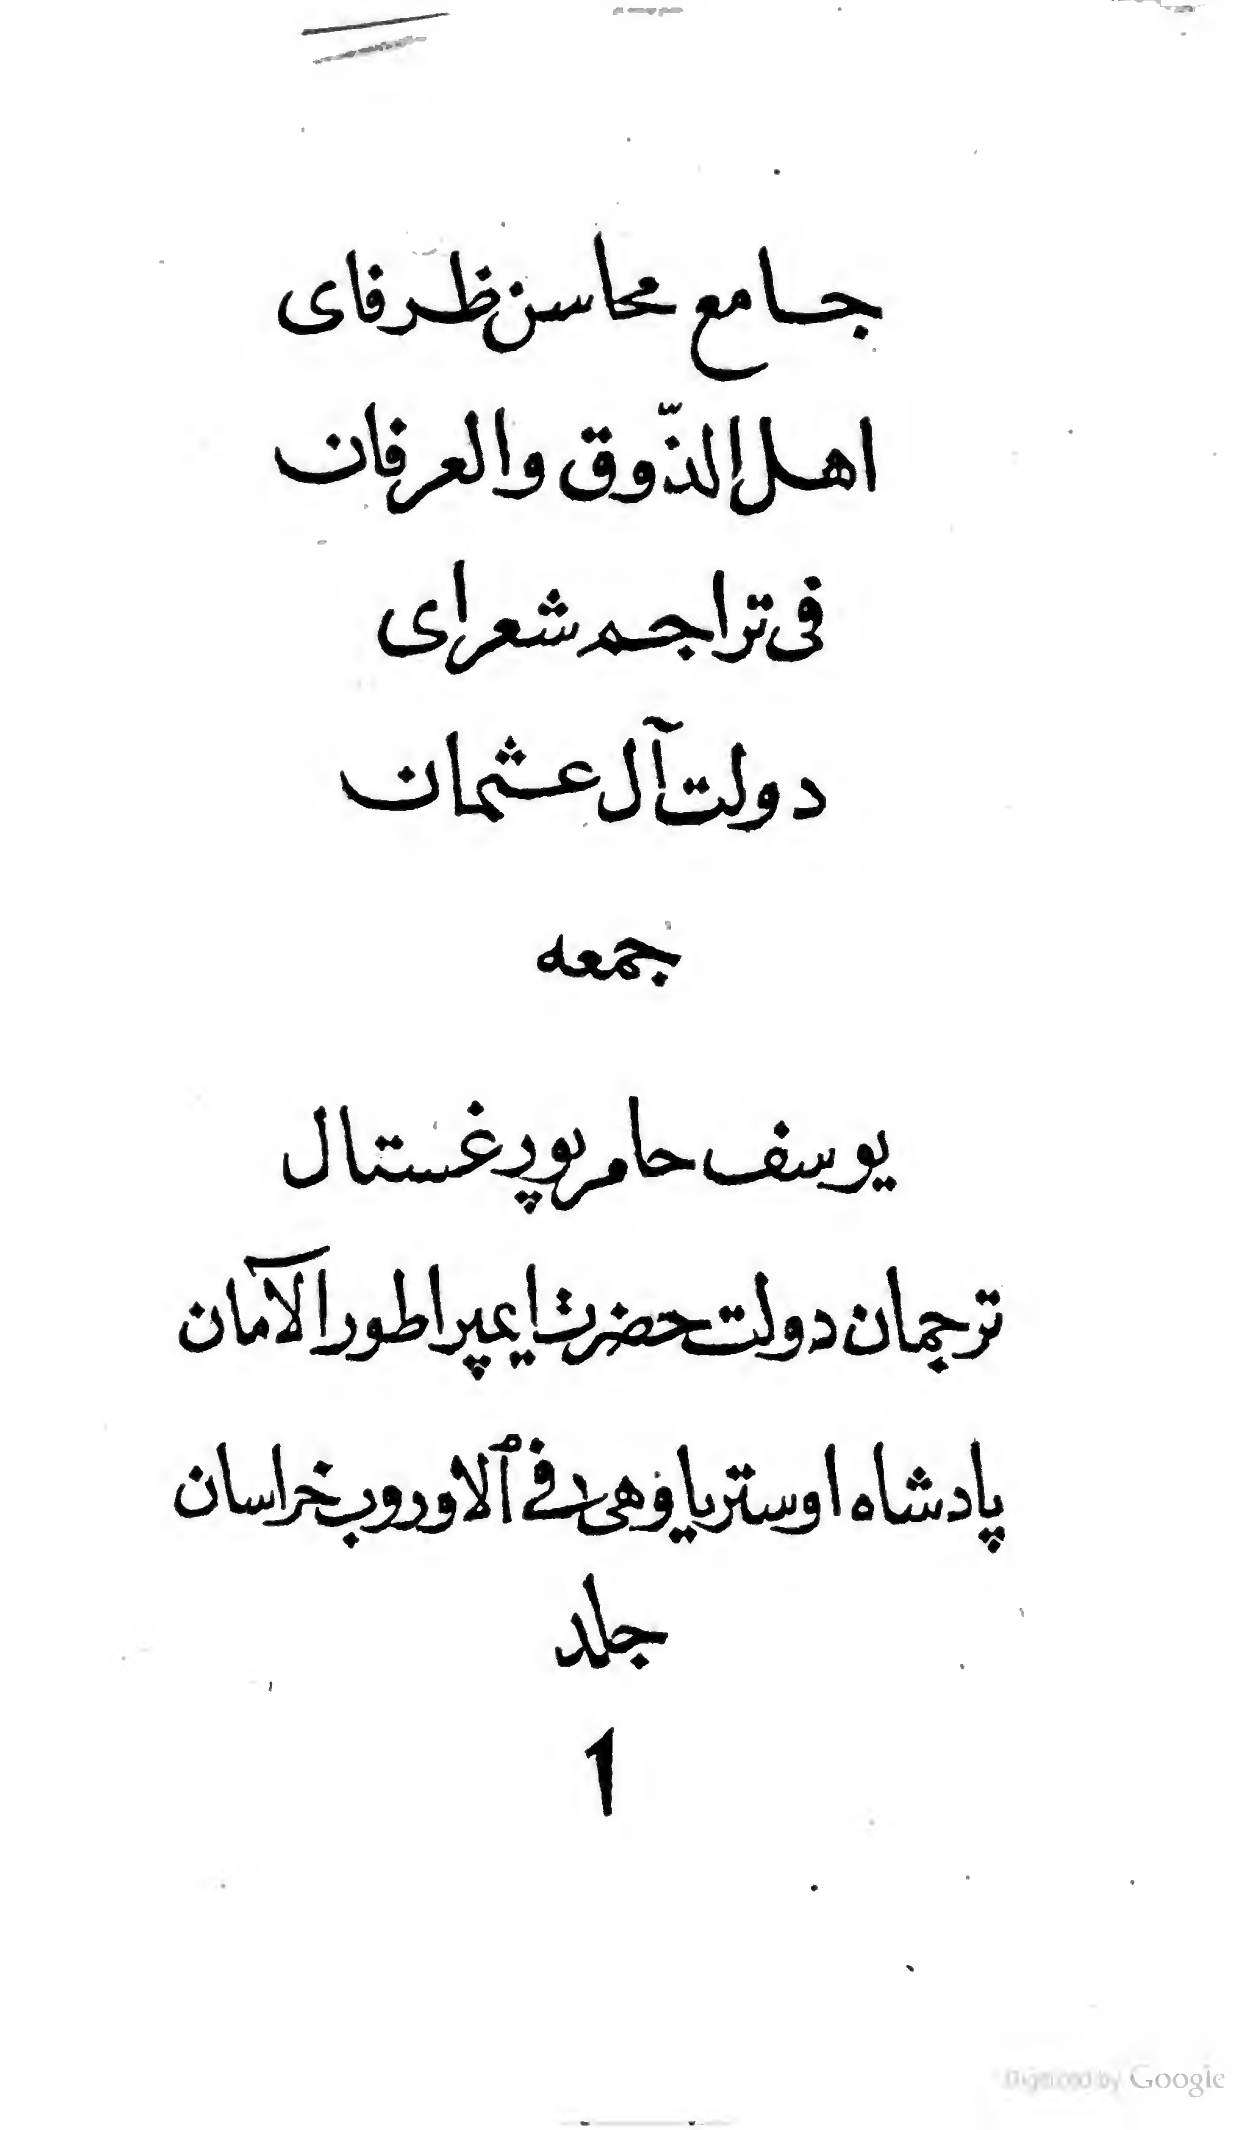 جامع محاسن ظرفای
اهل الذّوق والعرفان
فی تراجم شعرای
دولت آل عثمان
جمعه
یوسف حامر پورغستال
ترجمان دولت حضرت ایمپراطور الآمان
پادشاه اوستریا وهی فی الاوروپ خراسان
جلد
1
Digitized by Google